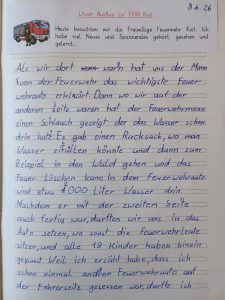 8.6.26
Unser Ausflug zur FFW Kast
Heute besuchten wir die Freiwillige Feuerwehr Kast. Ich
habe viel Neues und Spannendes gehört, gesehen und
gelernt.
Als wir dort waren hat uns der Mann
von der Feuerwehr das wichtigste Feuer-
wehrauto erklärt. Dann wo wir auf der
anderen Seite waren hat der Feuerwehrmann
einen Schlauch gezeigt der das Wasser schon
drin hat. Es gab einen Rucksack, wo man
Wasser einfüllen könnte und dann zum
Beispiel in den Wald gehen und das
Feuer löschen kann. In dem Feuerwehrauto
sind etwa 1.000 Liter Wasser drin.
Nachdem er mit der zweiten Seite
auch fertig war, durften wir uns in das
Auto setzen, wo sonst die Feuerwehrleute
sitzen, und alle 18 Kinder haben hinein
gepasst. Weil ich erzählt habe, dass ich
schon einmal an einem Feuerwehrauto auf
der Fahrerseite gesessen war, durfte ich